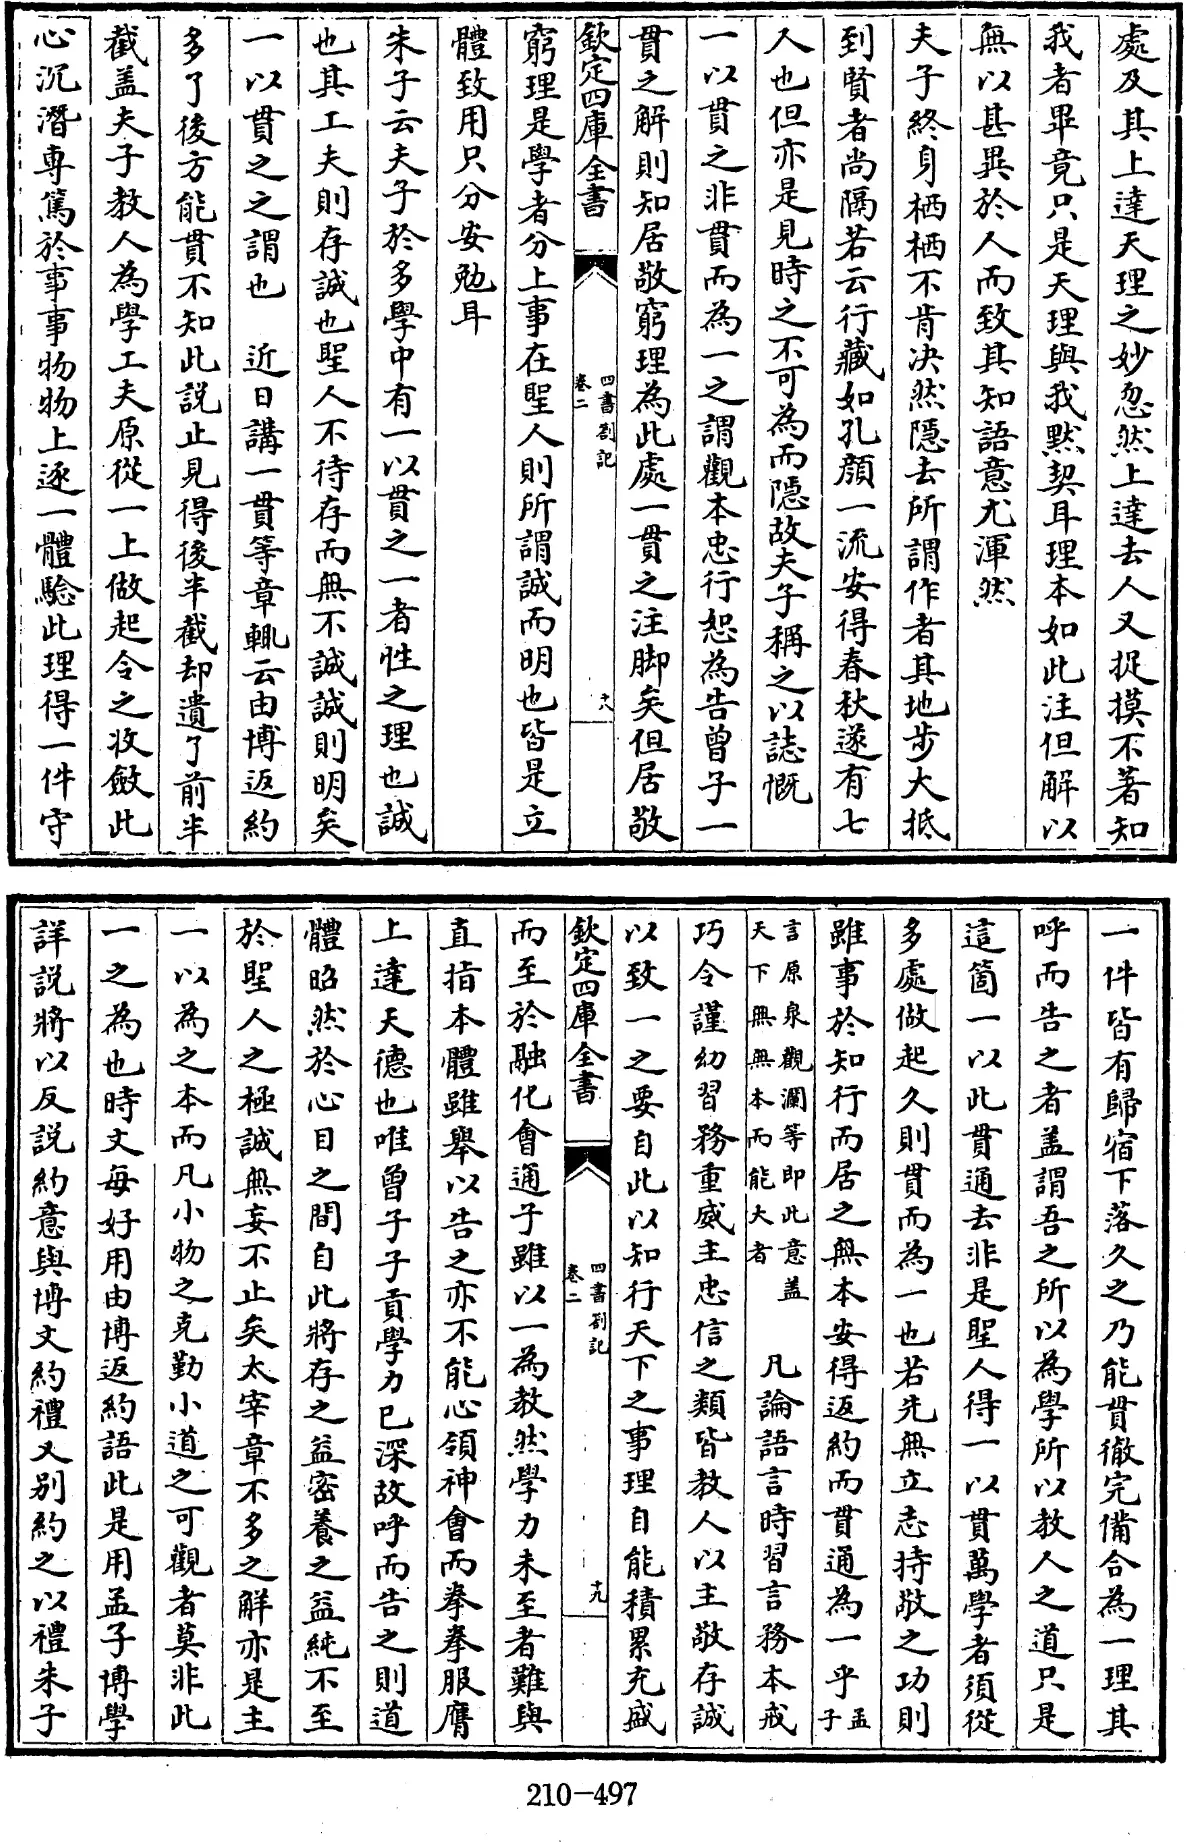 處及其上達天理之妙忽然上達去人又捉摸不著知
我者畢竟只是天理與我黙契耳理本如此注但解以
無以甚異於人而致其知語意尤渾然
夫子終身栖栖不肯决然隠去所謂作者其地步大抵
到賢者尚隔若云行藏如孔顔一流安得春秋遂有七
人也但亦是見時之不可為而隠故夫子稱之以誌慨
一以貫之非貫而為一之謂觀本忠行恕為告曾子一
貫之解則知居敬窮理為此處一貫之注脚矣但居敬
欽定四庫全書
四書劄記
卷二
十八
窮理是學者分上事在聖人則所謂誠而明也皆是立
體致用只分安勉耳
朱子云夫子於多學中有一以貫之一者性之理也誠
也其工夫則存誠也聖人不待存而無不誠誠則明矣
一以貫之之謂也　近日講一貫等章輒云由博返約
多了後方能貫不知此説止見得後半截却遺了前半
截盖夫子教人為學工夫原從一上做起令之收斂此
心沉潛専篤於事事物物上逐一體驗此理得一件守
一件皆有歸宿下落久之乃能貫徹完備合為一理其
呼而告之者盖謂吾之所以為學所以教人之道只是
這箇一以此貫通去非是聖人得一以貫萬學者須從
多處做起久則貫而為一也若先無立志持敬之功則
雖事於知行而居之無本安得返約而貫通為一乎孟子
言原泉觀瀾等即此意盖
天下無無本而能大者
凡論語言時習言務本戒
巧令謹幼習務重威主忠信之類皆教人以主敬存誠
以致一之要自此以知行天下之事理自能積累充盛
欽定四庫全書
四書劄記
卷二
十九
而至於融化會通子雖以一為教然學力未至者難與
直指本體雖舉以告之亦不能心領神會而拳拳服膺
上達天德也唯曾子子貢學力已深故呼而告之則道
體昭然於心目之間自此將存之益密養之益純不至
於聖人之極誠無妄不止矣太宰章不多之解亦是主
一以為之本而凡小物之克勤小道之可觀者莫非此
一之為也時文毎好用由博返約語此是用孟子博學
詳説將以反説約意與博文約禮又别約之以禮朱子
210-497